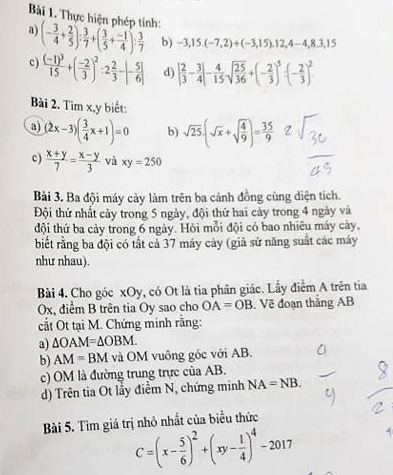 Bài 1. Thực hiện phép tính:
a) (-3/4 + 2/5) : 3/7 + (3/5 + -1/4) : 3/7 b) -3,15.(-7,2)+(-3,15).12,4-4,8.3,15
c) (-1)³/15 + (-2/3)² : 2 2/3 - |-5/6| d) |2/3 - 3/4| - 4/15 √(25/36) + (-2/3)⁵ : (-2/3)²
Bài 2. Tìm x,y biết:
a) (2x-3)(3/4 x+1)=0 b) √25.(√x + √(4/9)) = 35/9
c) (x+y)/7 = (x-y)/3 và xy = 250
Bài 3. Ba đội máy cày làm trên ba cánh đồng cùng diện tích.
Đội thứ nhất cày trong 5 ngày, đội thứ hai cày trong 4 ngày và
đội thứ ba cày trong 6 ngày. Hỏi mỗi đội có bao nhiêu máy cày,
biết rằng ba đội có tất cả 37 máy cày (giả sử năng suất các máy
như nhau).
Bài 4. Cho góc xOy, có Ot là tia phân giác. Lấy điểm A trên tia
Ox, điểm B trên tia Oy sao cho OA = OB. Vẽ đoạn thẳng AB
cắt Ot tại M. Chứng minh rằng:
a) ΔOAM=ΔOBM.
b) AM = BM và OM vuông góc với AB.
c) OM là đường trung trực của AB.
d) Trên tia Ot lấy điểm N, chứng minh NA = NB.
Bài 5. Tìm giá trị nhỏ nhất của biểu thức
C = (x - 5/6)² + (xy - 1/4)⁴ - 2017